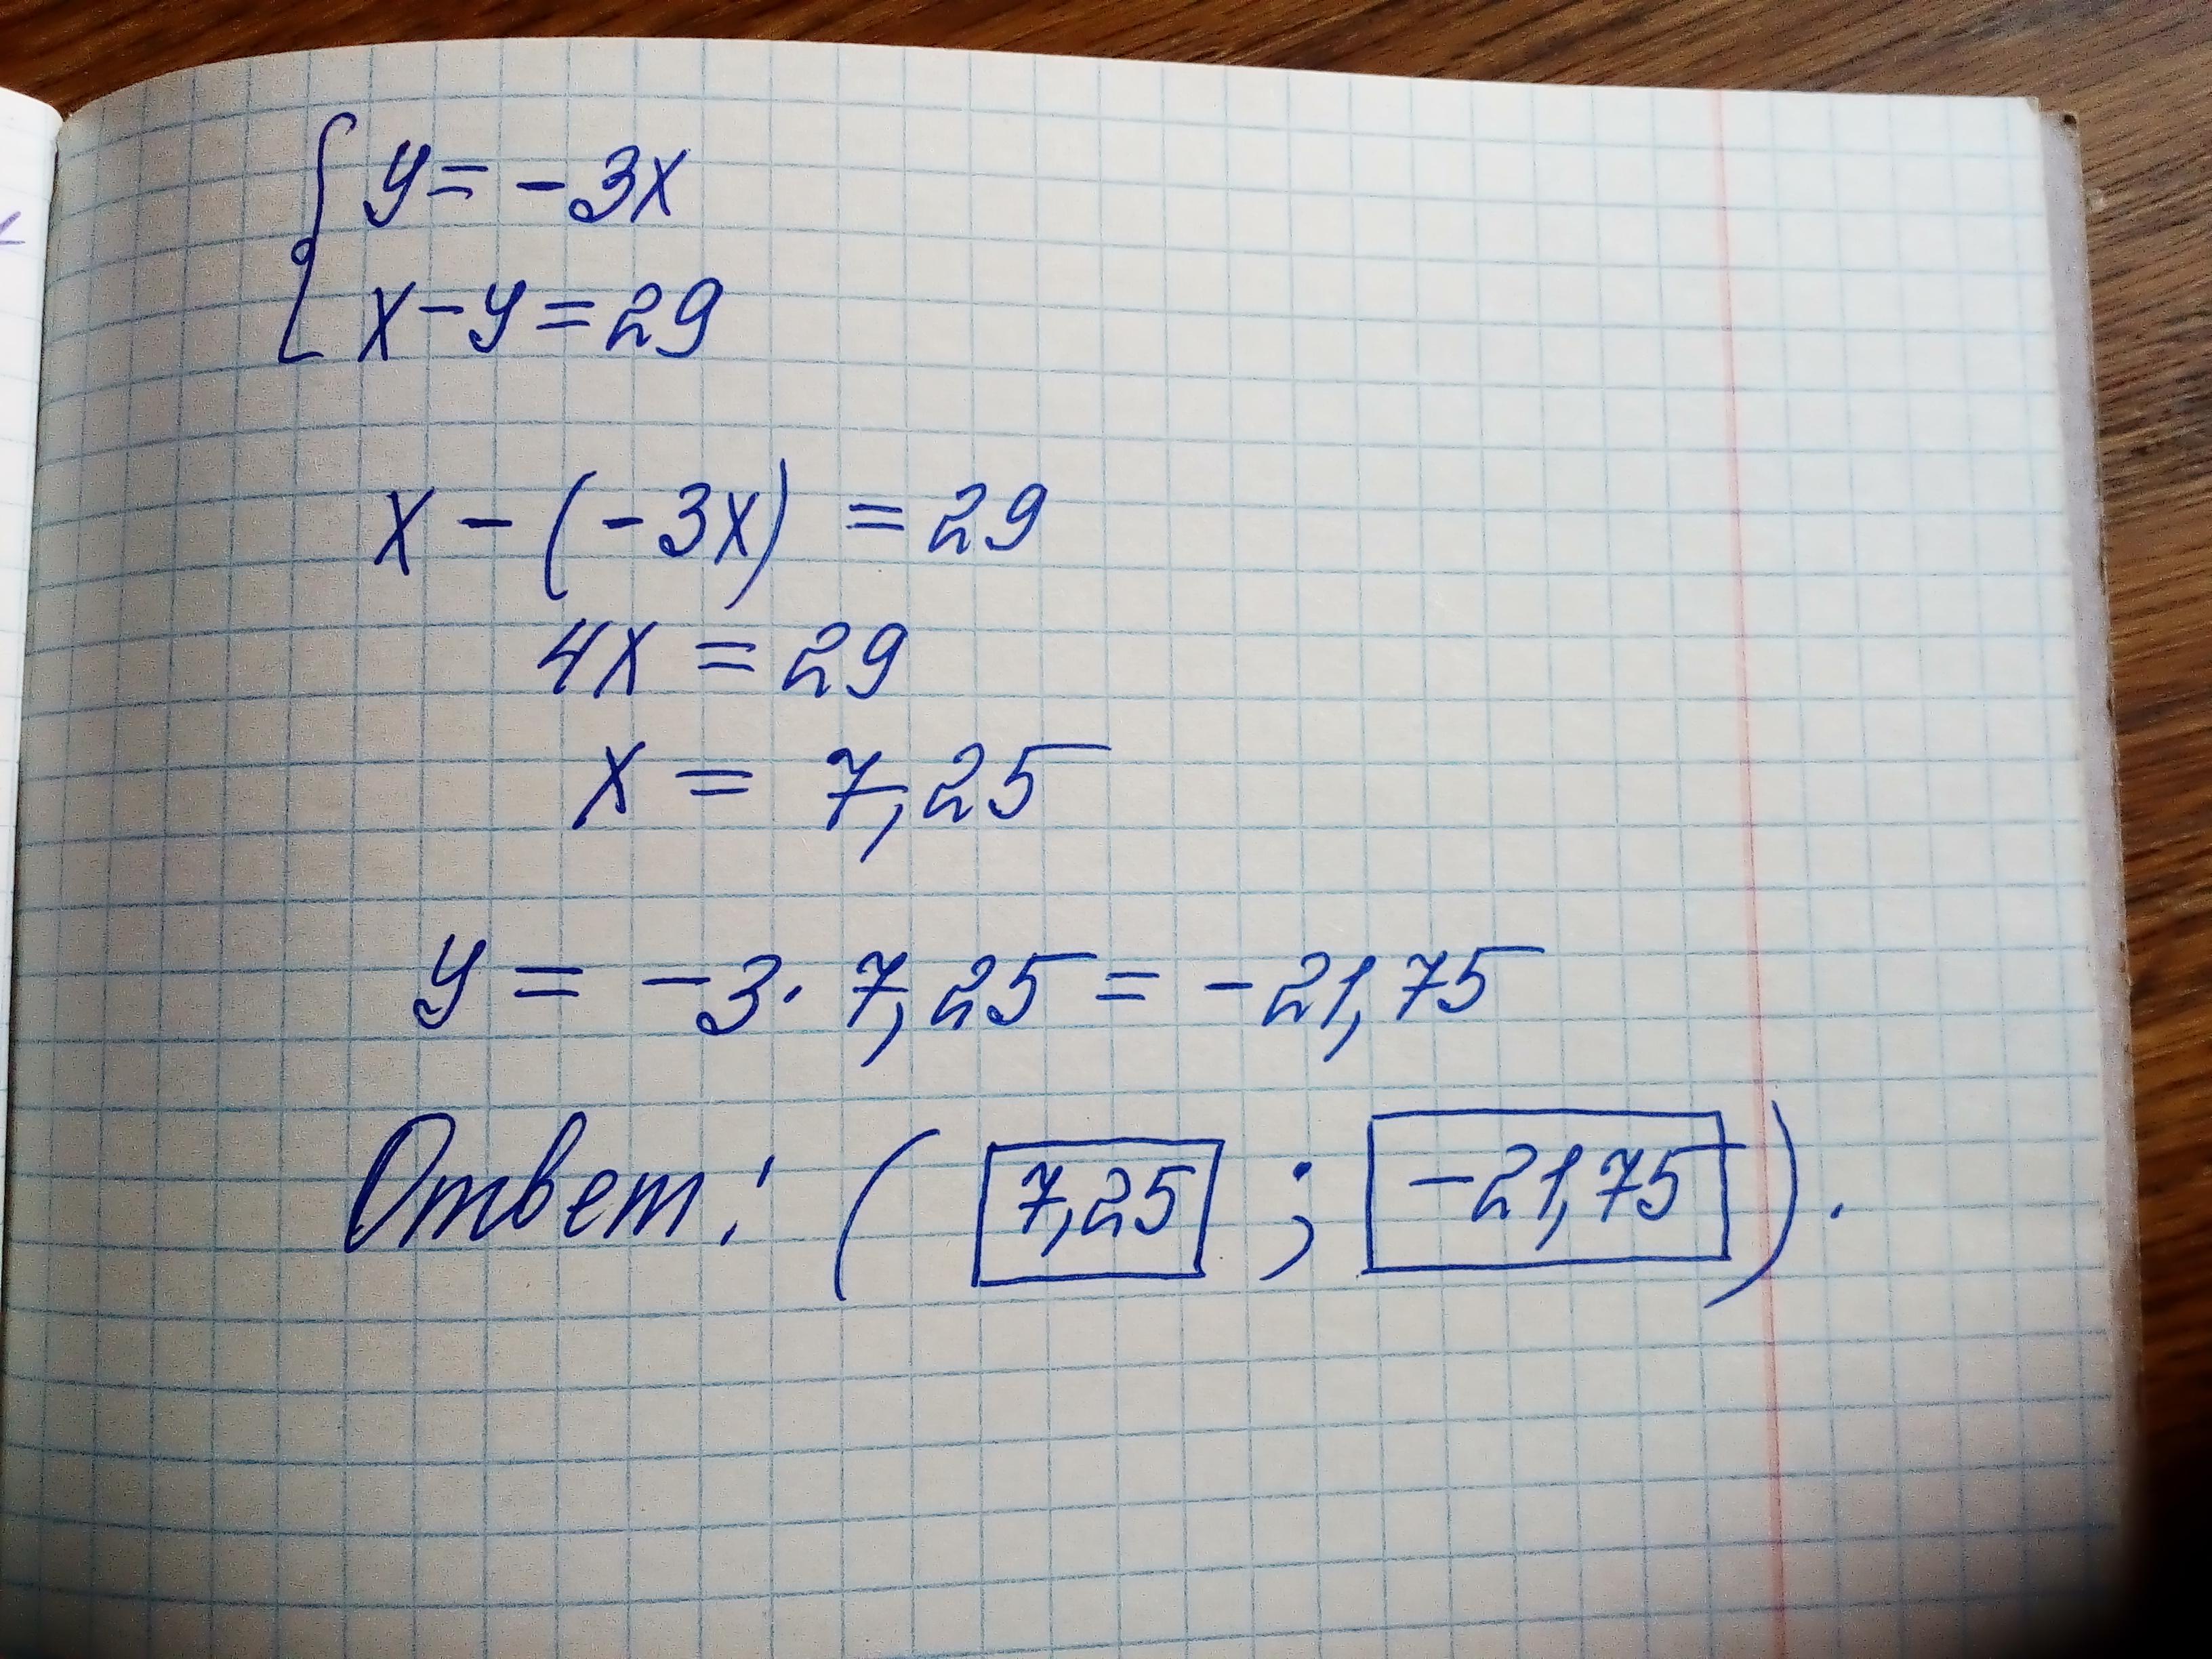 y = -3x
x - y = 29
x - (-3x) = 29
4x = 29
x = 7,25
y = -3 · 7,25 = -21,75
Ответ: ( 7,25 ; -21,75 ).